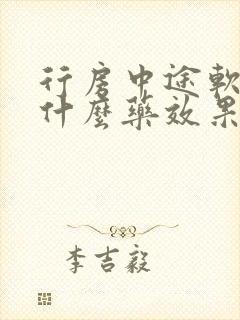 行房中途軟
什麼藥效果
李吉毅